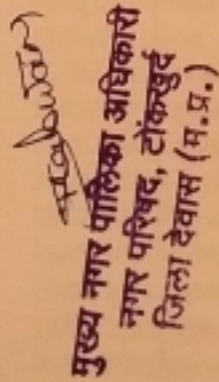 मुख्य नगर पालिका अधिकारी
नगर परिषद, टोंकखुर्द
जिला देवास (म.प्र.)